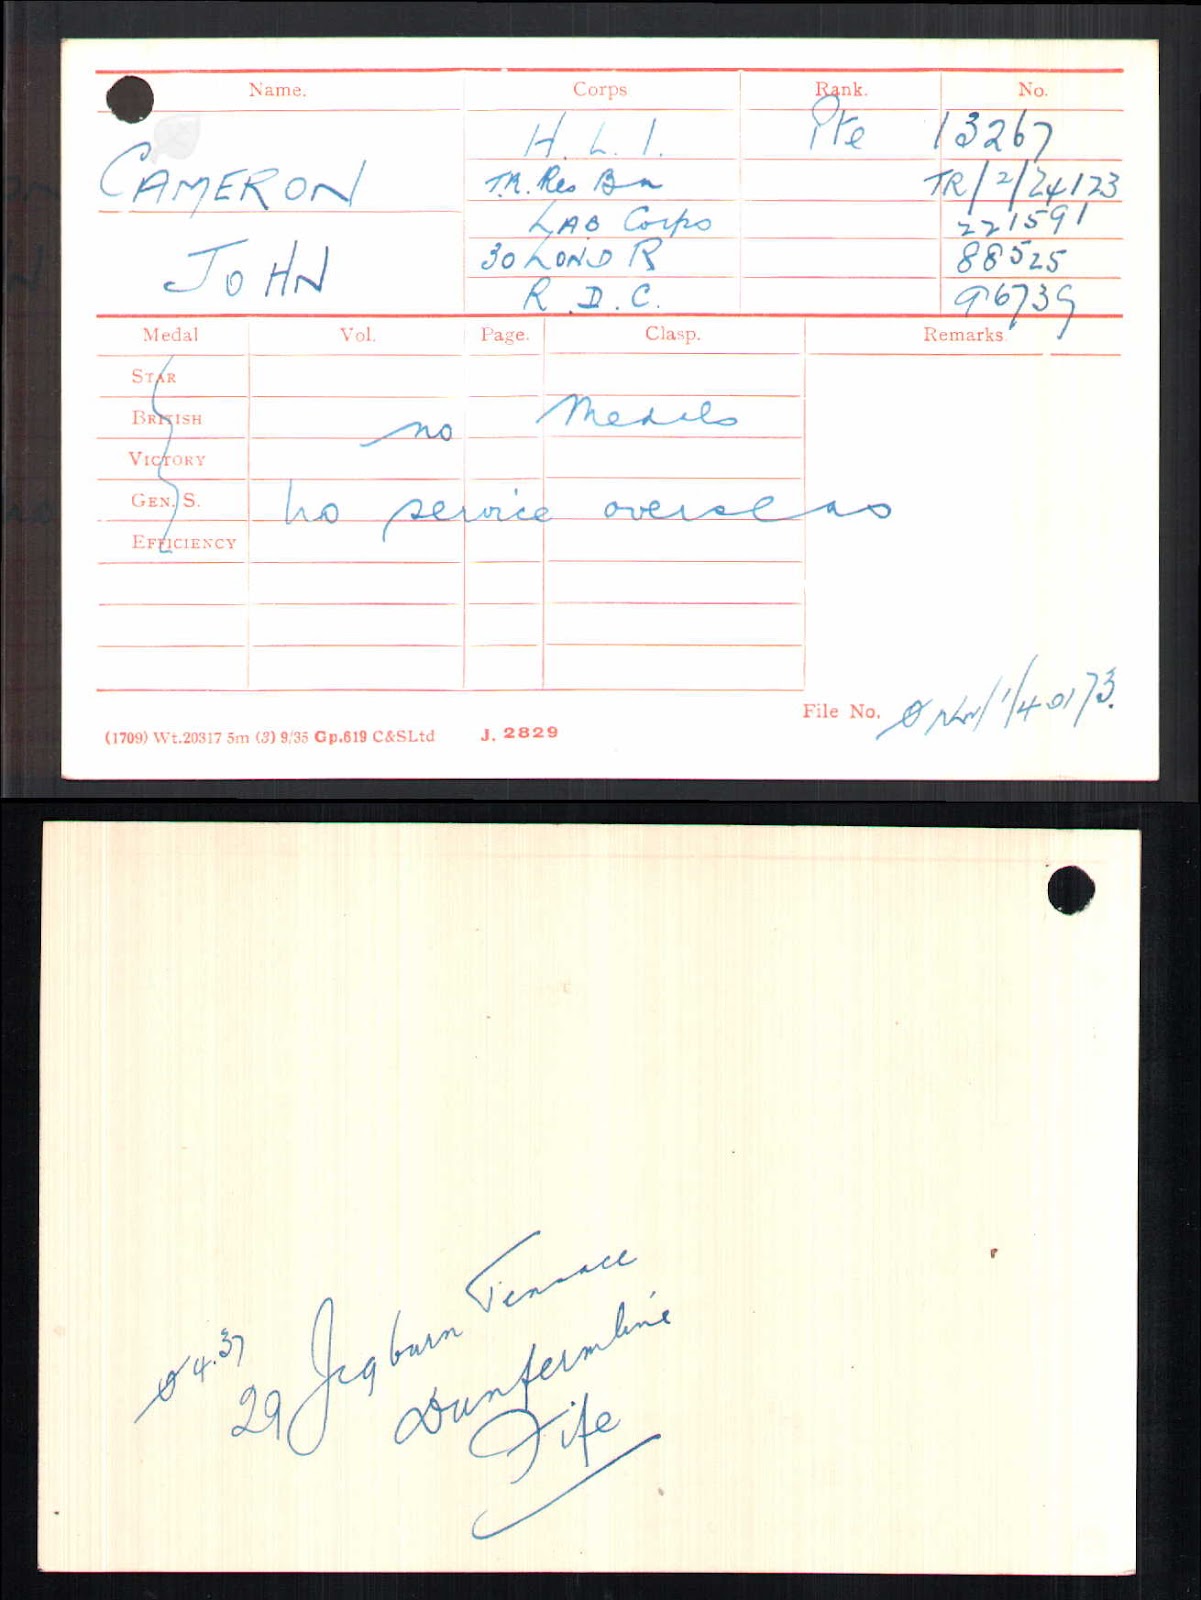 Name. Corps Rank. No.
CAMERON H. L. I. Pte 13267
T.R. Res Bn TR/2/24123
LAB Corps 221591
JOHN 30 LOND R 88525
R. D. C. 96739
Medal Vol. Page. Clasp. Remarks.
STAR
BRITISH no Medals
VICTORY
GEN. S. no service overseas
EFFICIENCY
File No. /1/40173.
(1709) Wt.20317 5m (3) 9/35 Gp.619 C&SLtd J. 2829
4.37
29 Terrace
Dunfermline
Fife